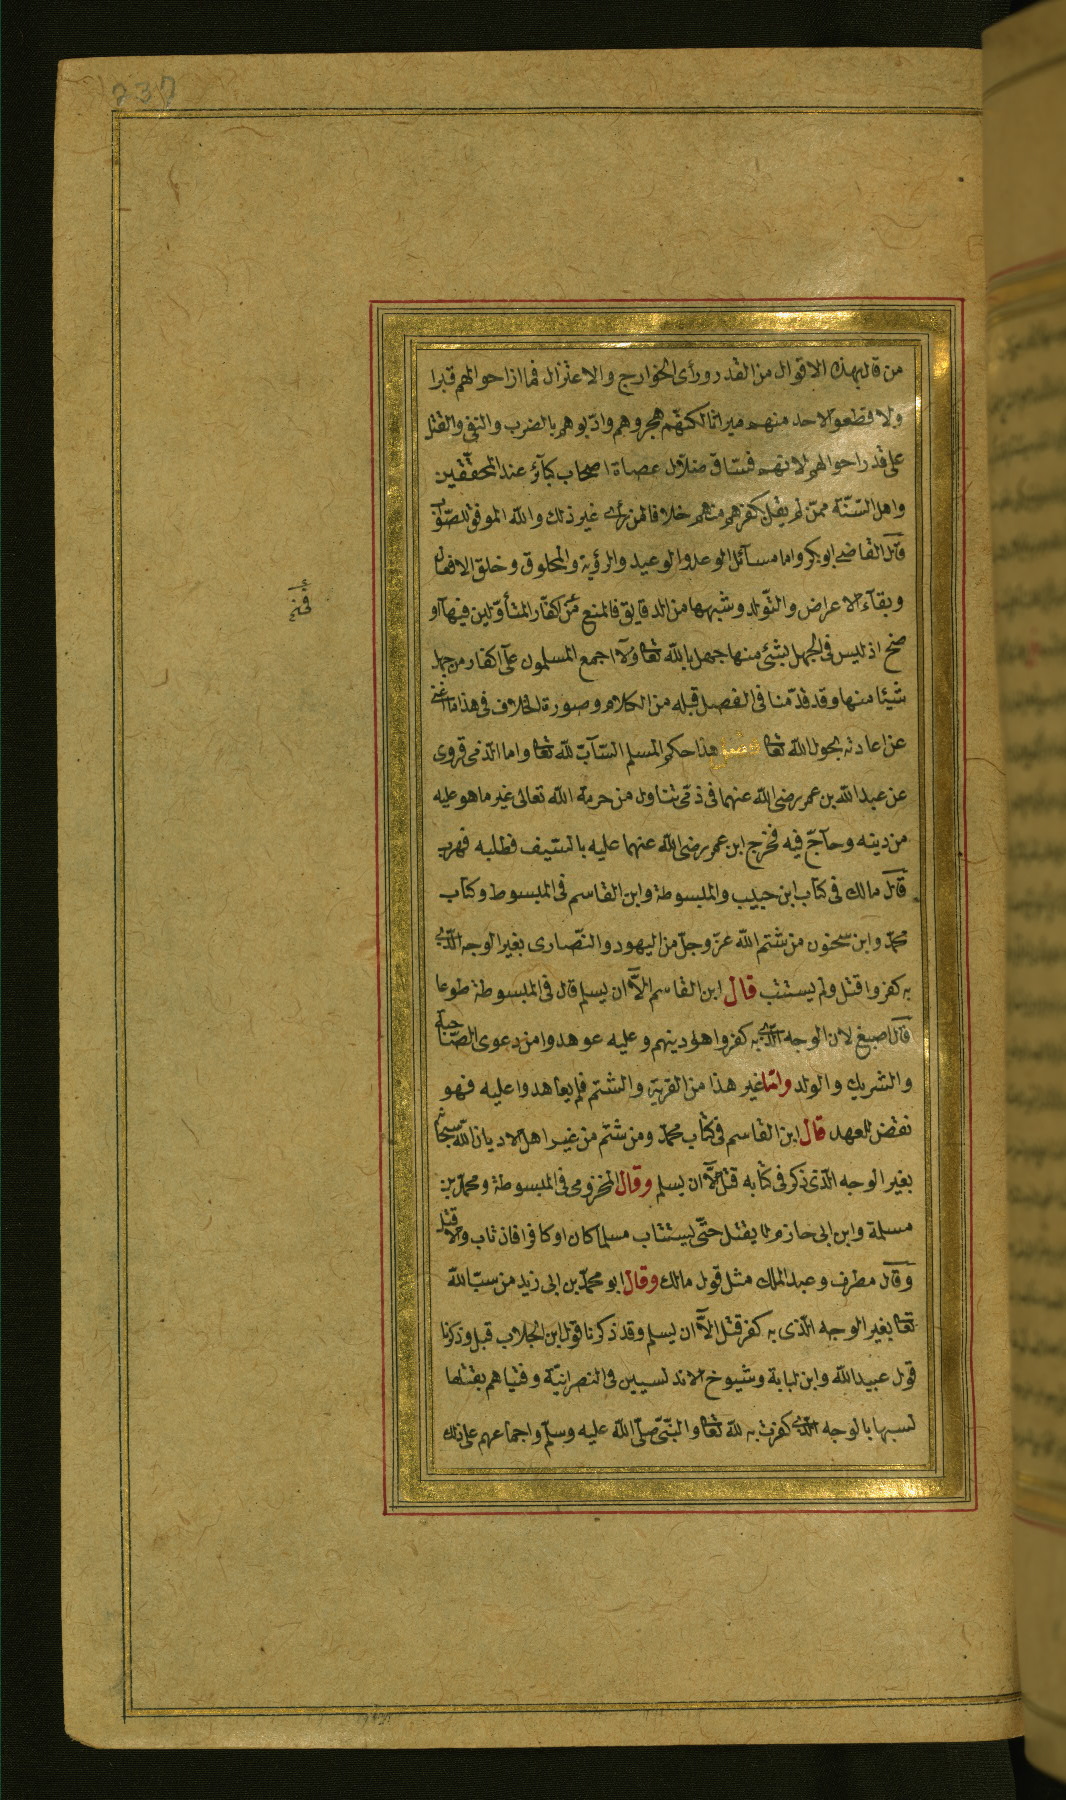 237
من قال بهذه الاقوال من القدر ورأى الخوارج والاعتزال فما ازاحوا لهم قبرا
ولا قطعوا لاحد منهم ميراثا لكنهم هجروهم وادبوهم بالضرب والنفى والقتل
على قدر احوالهم لانهم فساق ضلال عصاة اصحاب كبآئر عند المحققين
واهل السّنّة ممن لم يقل بكفرهم منهم خلافا لمن رأى غير ذلك والله الموفق للصّواب
قال القاضى ابو بكر واما مسآئل الوعد والوعيد والرؤية والمخلوق وخلق الافعال
وبقآء الاعراض والتّولد وشبهها من الدقايق فالمنع من اكفار المتأوّلين فيها او
ضح اذ ليس فى الجهل بشئ منها جهل بالله تعا ولا اجمع المسلمون على اكفار من جهل
شيئا منها وقد قدّمنا فى الفصل قبله من الكلام وصورة الخلاف فى هذا ما اغنى
عن اعادته بحول الله تعا فصل هذا حكم المسلم السّآبّ لله تعا واما الذمى فروى
عن عبد الله بن عمر رضى الله عنهما فى ذمّى تناول من حرمة الله تعالى غير ما هو عليه
من دينه وحاجّ فيه فخرج ابن عمر رضى الله عنهما عليه بالسّيف فطلبه فهرب
قال مالك فى كتاب ابن حبيب والمبسوطة وابن القاسم فى المبسوط وكتاب
محمّد وابن سحنون من شتم الله عزّ وجلّ من اليهود والنّصارى بغير الوجه الّذى
به كفروا قتل ولم يستتب قال ابن القاسم الّا ان يسلم قال فى المبسوطة طوعا
قال اصبغ لان الوجه الّذى به كفروا هو دينهم وعليه عوهدوا من دعوى الصّاحبة
والشريك والولد وامّا غير هذا من الفرية والشتم فلم يعاهدوا عليه فهو
نقض للعهد قال ابن القاسم فى كتاب محمّد ومن شتم من غير اهل الاديان الله سبحانه
بغير الوجه الّذى ذكر فى كتابه قتل الّا ان يسلم وقال المخزومى فى المبسوطة ومحمّد بن
مسلمة وابن ابى حازم لا يقتل حتّى يستتاب مسلما كان او كافرا فان تاب والا قتل
وقال مطرف وعبد الملك مثل قول مالك وقال ابو محمّد بن ابى زيد من سبّ الله
تعا بغير الوجه الّذى به كفر قتل الّا ان يسلم وقد ذكرنا قول ابن الجلاب قبل وذكرنا
قول عبيد الله وابن لبابة وشيوخ الاندلسيين فى النصرانيّة وفتياهم بقتلها
لسبها بالوجه الّذى كفرت به لله تعا والنّبىّ صلّى الله عليه وسلّم واجماعهم على ذلك